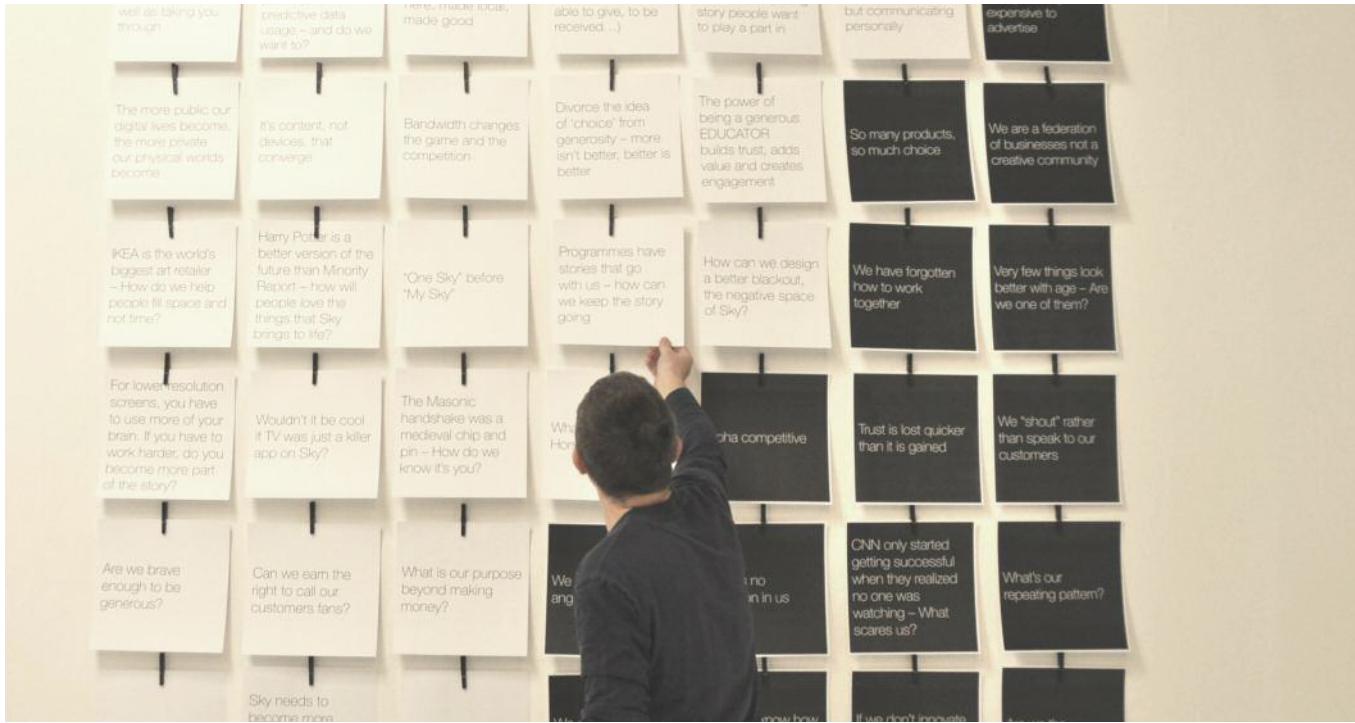 well as taking you
through
predictive data
usage – and do we
want to?
here, made local,
made good
able to give, to be
received...)
story people want
to play a part in
but communicating
personally
expensive to
advertise
The more public our
digital lives become,
the more private
our physical worlds
become
It's content, not
devices, that
converge
Bandwidth changes
the game and the
competition
Divorce the idea
of 'choice' from
generosity – more
isn't better, better is
better
The power of
being a generous
EDUCATOR
builds trust, adds
value and creates
engagement
So many products,
so much choice
We are a federation
of businesses not a
creative community
IKEA is the world's
biggest art retailer
– How do we help
people fill space and
not time?
Harry Potter is a
better version of the
future than Minority
Report – how will
people love the
things that Sky
brings to life?
"One Sky" before
"My Sky"
Programmes have
stories that go
with us – how can
we keep the story
going
How can we design
a better blackout,
the negative space
of Sky?
We have forgotten
how to work
together
Very few things look
better with age – Are
we one of them?
For lower resolution
screens, you have
to use more of your
brain. If you have to
work harder, do you
become more part
of the story?
Wouldn't it be cool
if TV was just a killer
app on Sky?
The Masonic
handshake was a
medieval chip and
pin – How do we
know it's you?
competitive
Trust is lost quicker
than it is gained
We "shout" rather
than speak to our
customers
Are we brave
enough to be
generous?
Can we earn the
right to call our
customers fans?
What is our purpose
beyond making
money?
We
no
in us
CNN only started
getting successful
when they realized
no one was
watching – What
scares us?
What's our
repeating pattern?
Sky needs to
become more
know how
If we don't innovate